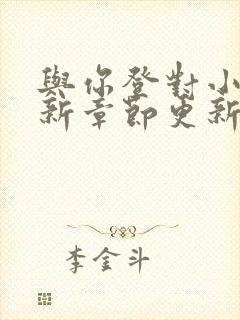 與你登對小
新章節更新
李金斗